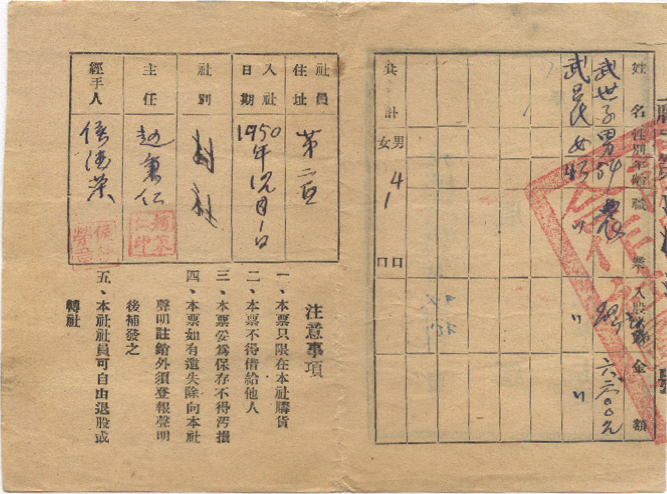 姓名 性別 年齡 職業 入股 金額
武世子 男 54 農 六二〇〇元
武吕氏 女 43 〃 〃 〃
共計 男 4 口
女 1 口
注意事項
一、本票只限在本社購貨
二、本票不得借給他人
三、本票妥爲保存不得汚損
四、本票如有遺失除向本社
聲明註銷外須登報聲明
後補發之
五、本社社員可自由退股或
轉社
社員住址 第二頁
入社日期 1950年12月1日
社別 村社
主任 趙秉仁
經手人 侯德荣